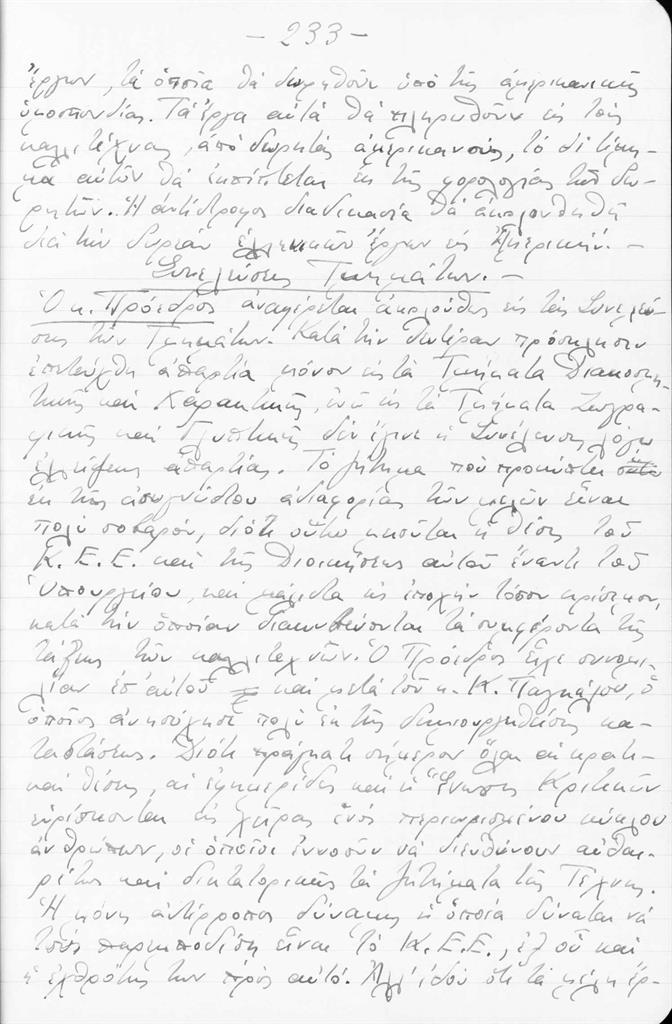 - 233 -
ἔργων, τὰ ὁποῖα θὰ δωρηθοῦν ὑπὸ τῆς ἀμερικανικῆς
ὁμοσπονδίας. Τὰ ἔργα αὐτὰ θὰ πληρωθοῦν εἰς τοὺς
καλλιτέχνας, ἀπὸ δωρητὰς ἀμερικανούς, τὸ δὲ τίμη-
μα αὐτῶν θὰ ἐκπίπτεται ἐκ τῆς φορολογίας τῶν δω-
ρητῶν. Ἡ ἀντίστροφος διαδικασία θὰ ἀκολουθηθῇ
διὰ τὴν δωρεὰν ἑλληνικῶν ἔργων εἰς Ἀμερικήν. -
Συνελεύσεις Τμημάτων. -
Ὁ κ. Πρόεδρος ἀναφέρεται ἀκολούθως εἰς τὰς Συνελεύ-
σεις τῶν Τμημάτων. Κατὰ τὴν δευτέραν πρόσκλησιν
ἐπετεύχθη ἀπαρτία μόνον εἰς τὰ Τμήματα Διακοσμη-
τικῆς καὶ Χαρακτικῆς, ἐνῶ εἰς τὰ Τμήματα Ζωγρα-
φικῆς καὶ Γλυπτικῆς δὲν ἔγινε ἡ Συνέλευσις λόγῳ
ἐλλείψεως ἀπαρτίας. Τὸ ζήτημα ποὺ προκύπτει
ἐκ τῆς ἀσυγγνώστου ἀδιαφορίας τῶν μελῶν εἶναι
πολὺ σοβαρόν, διότι οὕτω μειοῦται ἡ θέσις τοῦ
Κ. Ε. Ε. καὶ τῆς Διοικήσεως αὐτοῦ ἔναντι τοῦ
Ὑπουργείου, καὶ μάλιστα εἰς ἐποχὴν τόσον κρίσιμον,
κατὰ τὴν ὁποίαν διακυβεύονται τὰ συμφέροντα τῆς
τάξεως τῶν καλλιτεχνῶν. Ὁ Πρόεδρος εἶχε συνομι-
λίαν ἐπ' αὐτοῦ καὶ μετὰ τοῦ κ. Κ. Παγκάλου, ὁ
ὁποῖος ἀνησύχησε πολὺ ἐκ τῆς δημιουργηθείσης κα-
ταστάσεως. Διότι πράγματι σήμερον ὅλαι αἱ κρατι-
καὶ θέσεις, αἱ ἐφημερίδες καὶ ἡ Ἕνωσις Κριτικῶν
εὑρίσκονται εἰς χεῖρας ἑνὸς περιωρισμένου κύκλου
ἀνθρώπων, οἱ ὁποῖοι ἐννοοῦν νὰ διευθύνουν αὐθαι-
ρέτως καὶ δικτατορικῶς τὰ ζητήματα τῆς Τέχνης.
Ἡ μόνη ἀντίρροπος δύναμις ἡ ὁποία δύναται νὰ
τοὺς παρεμποδίσῃ εἶναι τὸ Κ.Ε.Ε., ἐξ οὗ καὶ
ἡ ἐχθρότης των πρὸς αὐτό. Ἀλλ' ἰδοὺ ὅτι τὰ μέλη ἐρ-